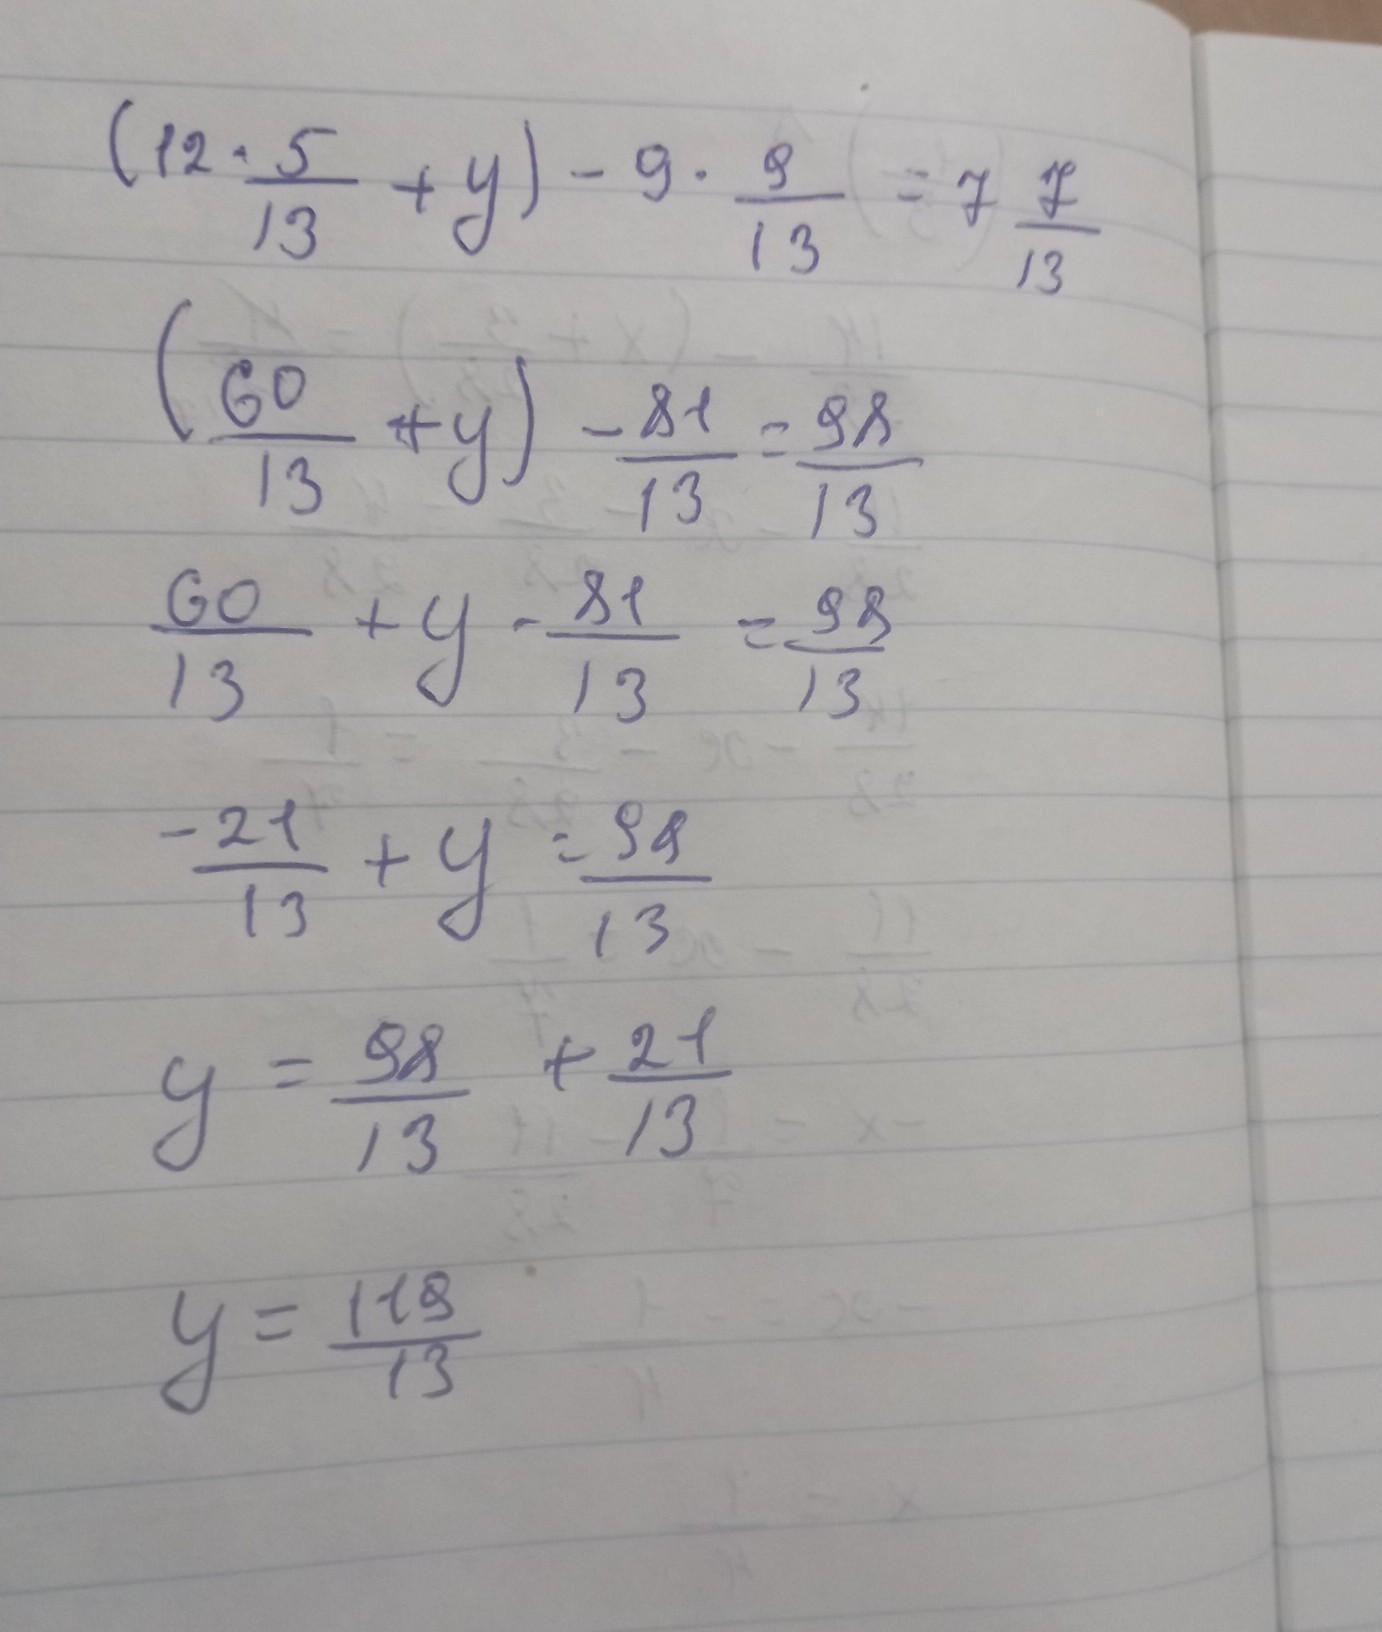 (12 · 5/13 + y) - 9 · 9/13 = 7 7/13
(60/13 + y) - 81/13 = 98/13
60/13 + y - 81/13 = 98/13
-21/13 + y = 98/13
y = 98/13 + 21/13
y = 119/13